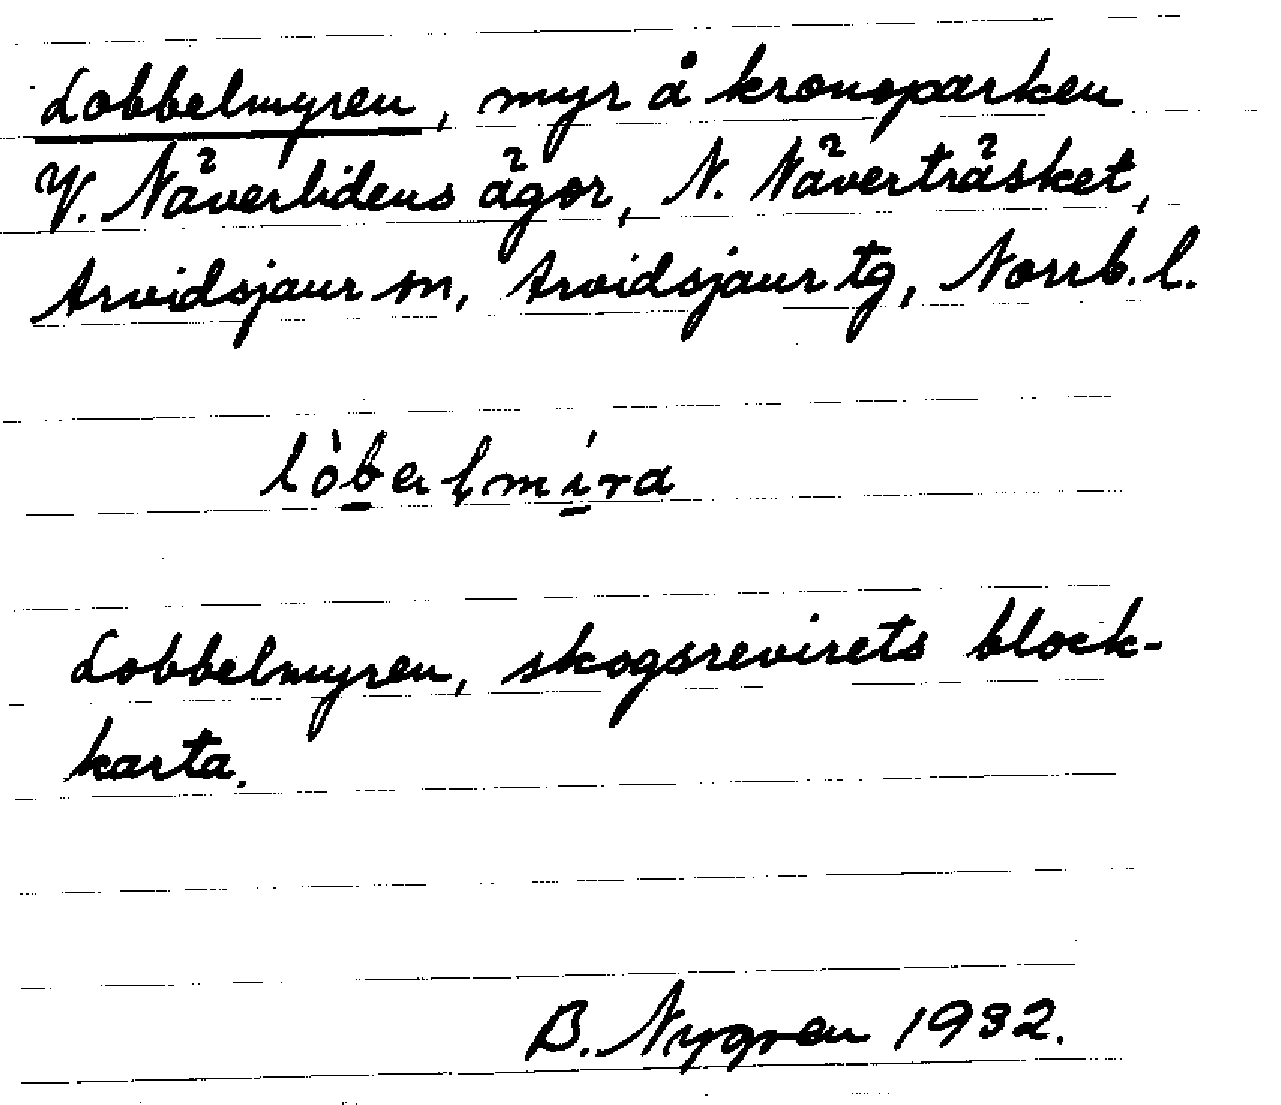 Lobbelmyren, myr å kronoparken
V. Näverlidens ägor, N. Näverträsket,
Arvidsjaur sn, Arvidsjaur tg, Norrb. l.
Lobbelmyren, skogsrevirets block-
karta.
B. Nygren 1932.